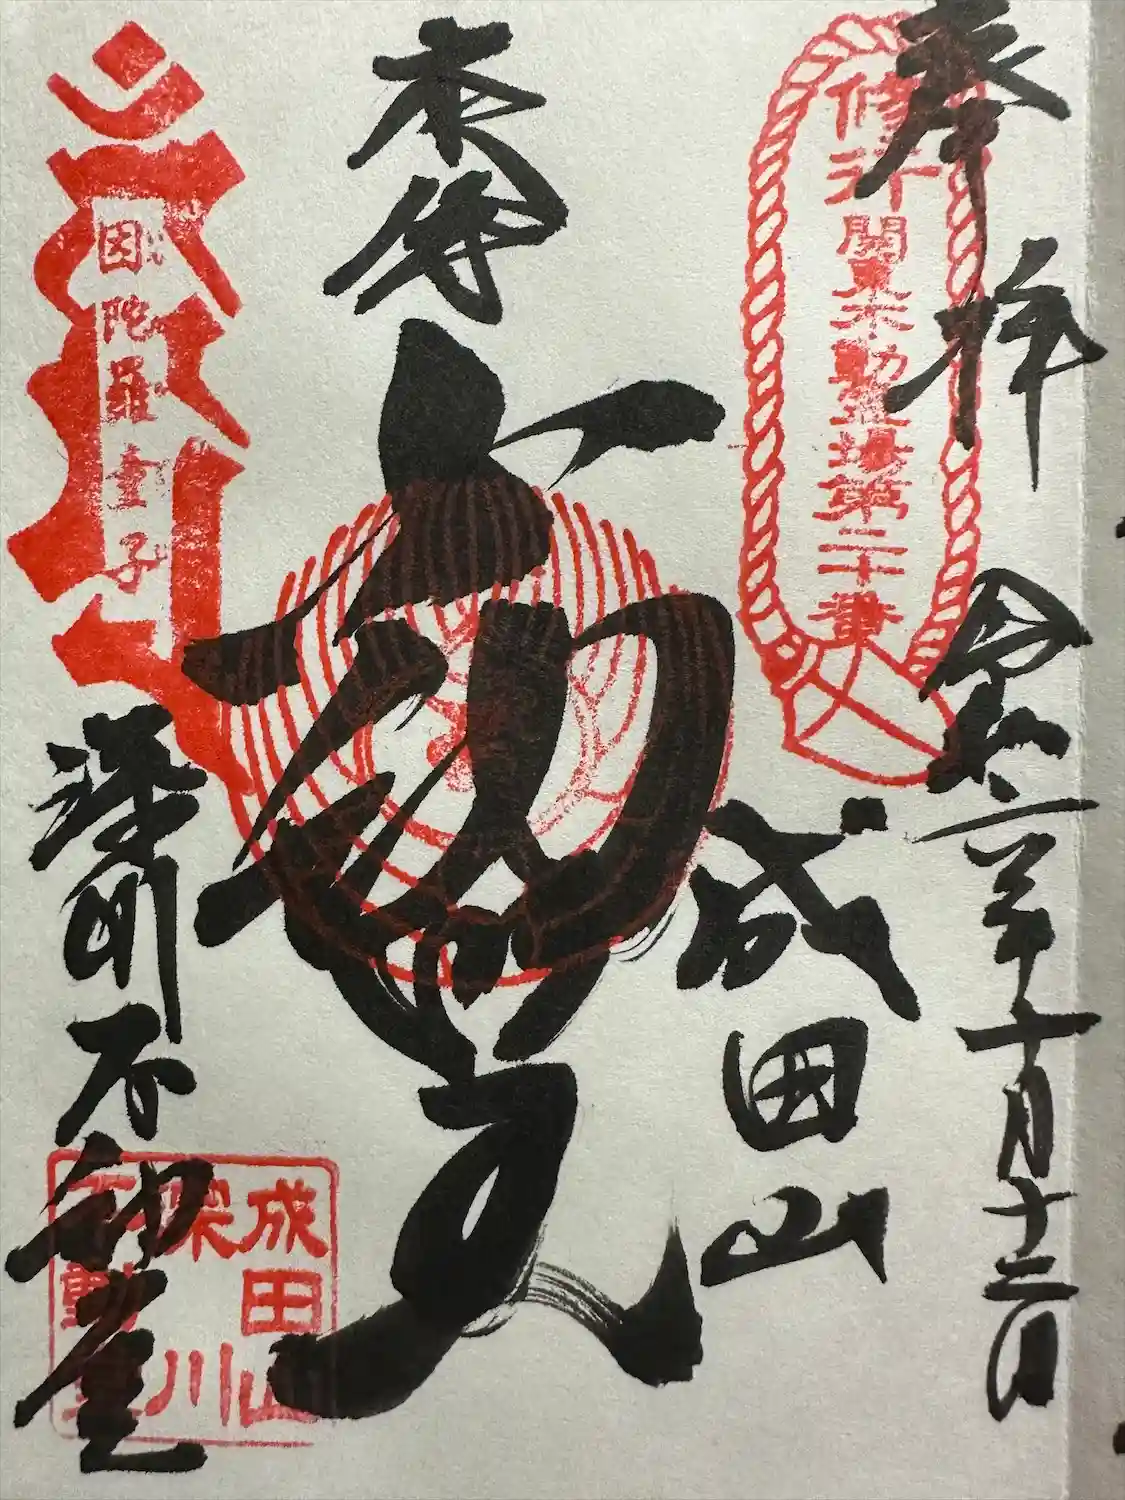 奉拝
令和六年十月十二日
修行 関東不動霊場第二十番
成田山
本尊
因陀羅童子
深川不動堂
成田山
深川
不動堂